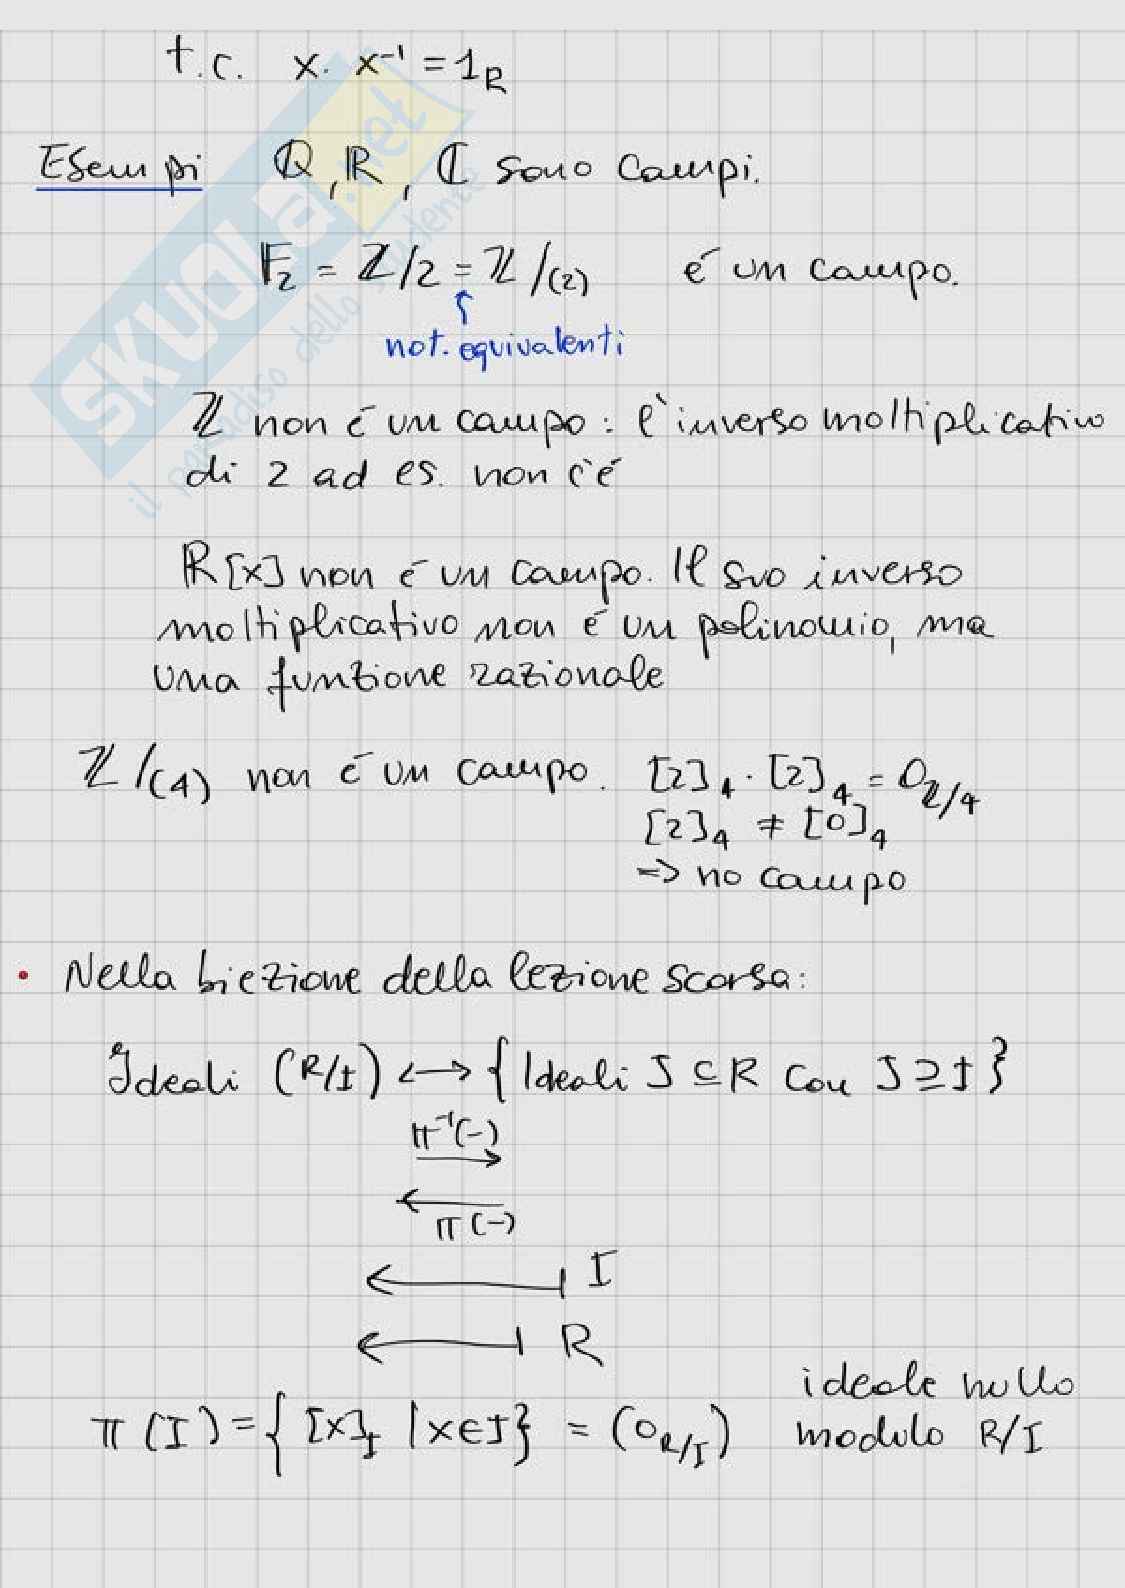 t.c. x · x⁻¹ = 1_R
Esempi ℚ, ℝ, ℂ sono campi.
𝔽₂ = ℤ/2 = ℤ/(2) é un campo.
not. equivalenti
ℤ non é un campo: l'inverso moltiplicativo
di 2 ad es. non c'é
ℝ[x] non é un campo. Il suo inverso
moltiplicativo non é un polinomio, ma
una funzione razionale
ℤ/(4) non é un campo. [2]₄ · [2]₄ = 0_ℤ/4
[2]₄ ≠ [0]₄
=> no campo
• Nella biezione della lezione scorsa:
Ideali (R/I) ⟷ { Ideali J ⊆ R con J ⊇ I }
π⁻¹(-)
π(-)
I
R
ideale nullo
π(I) = { [x]_I | x ∈ I } = (0_R/I) modulo R/I
SKUOLA.net
il paradiso dello studente